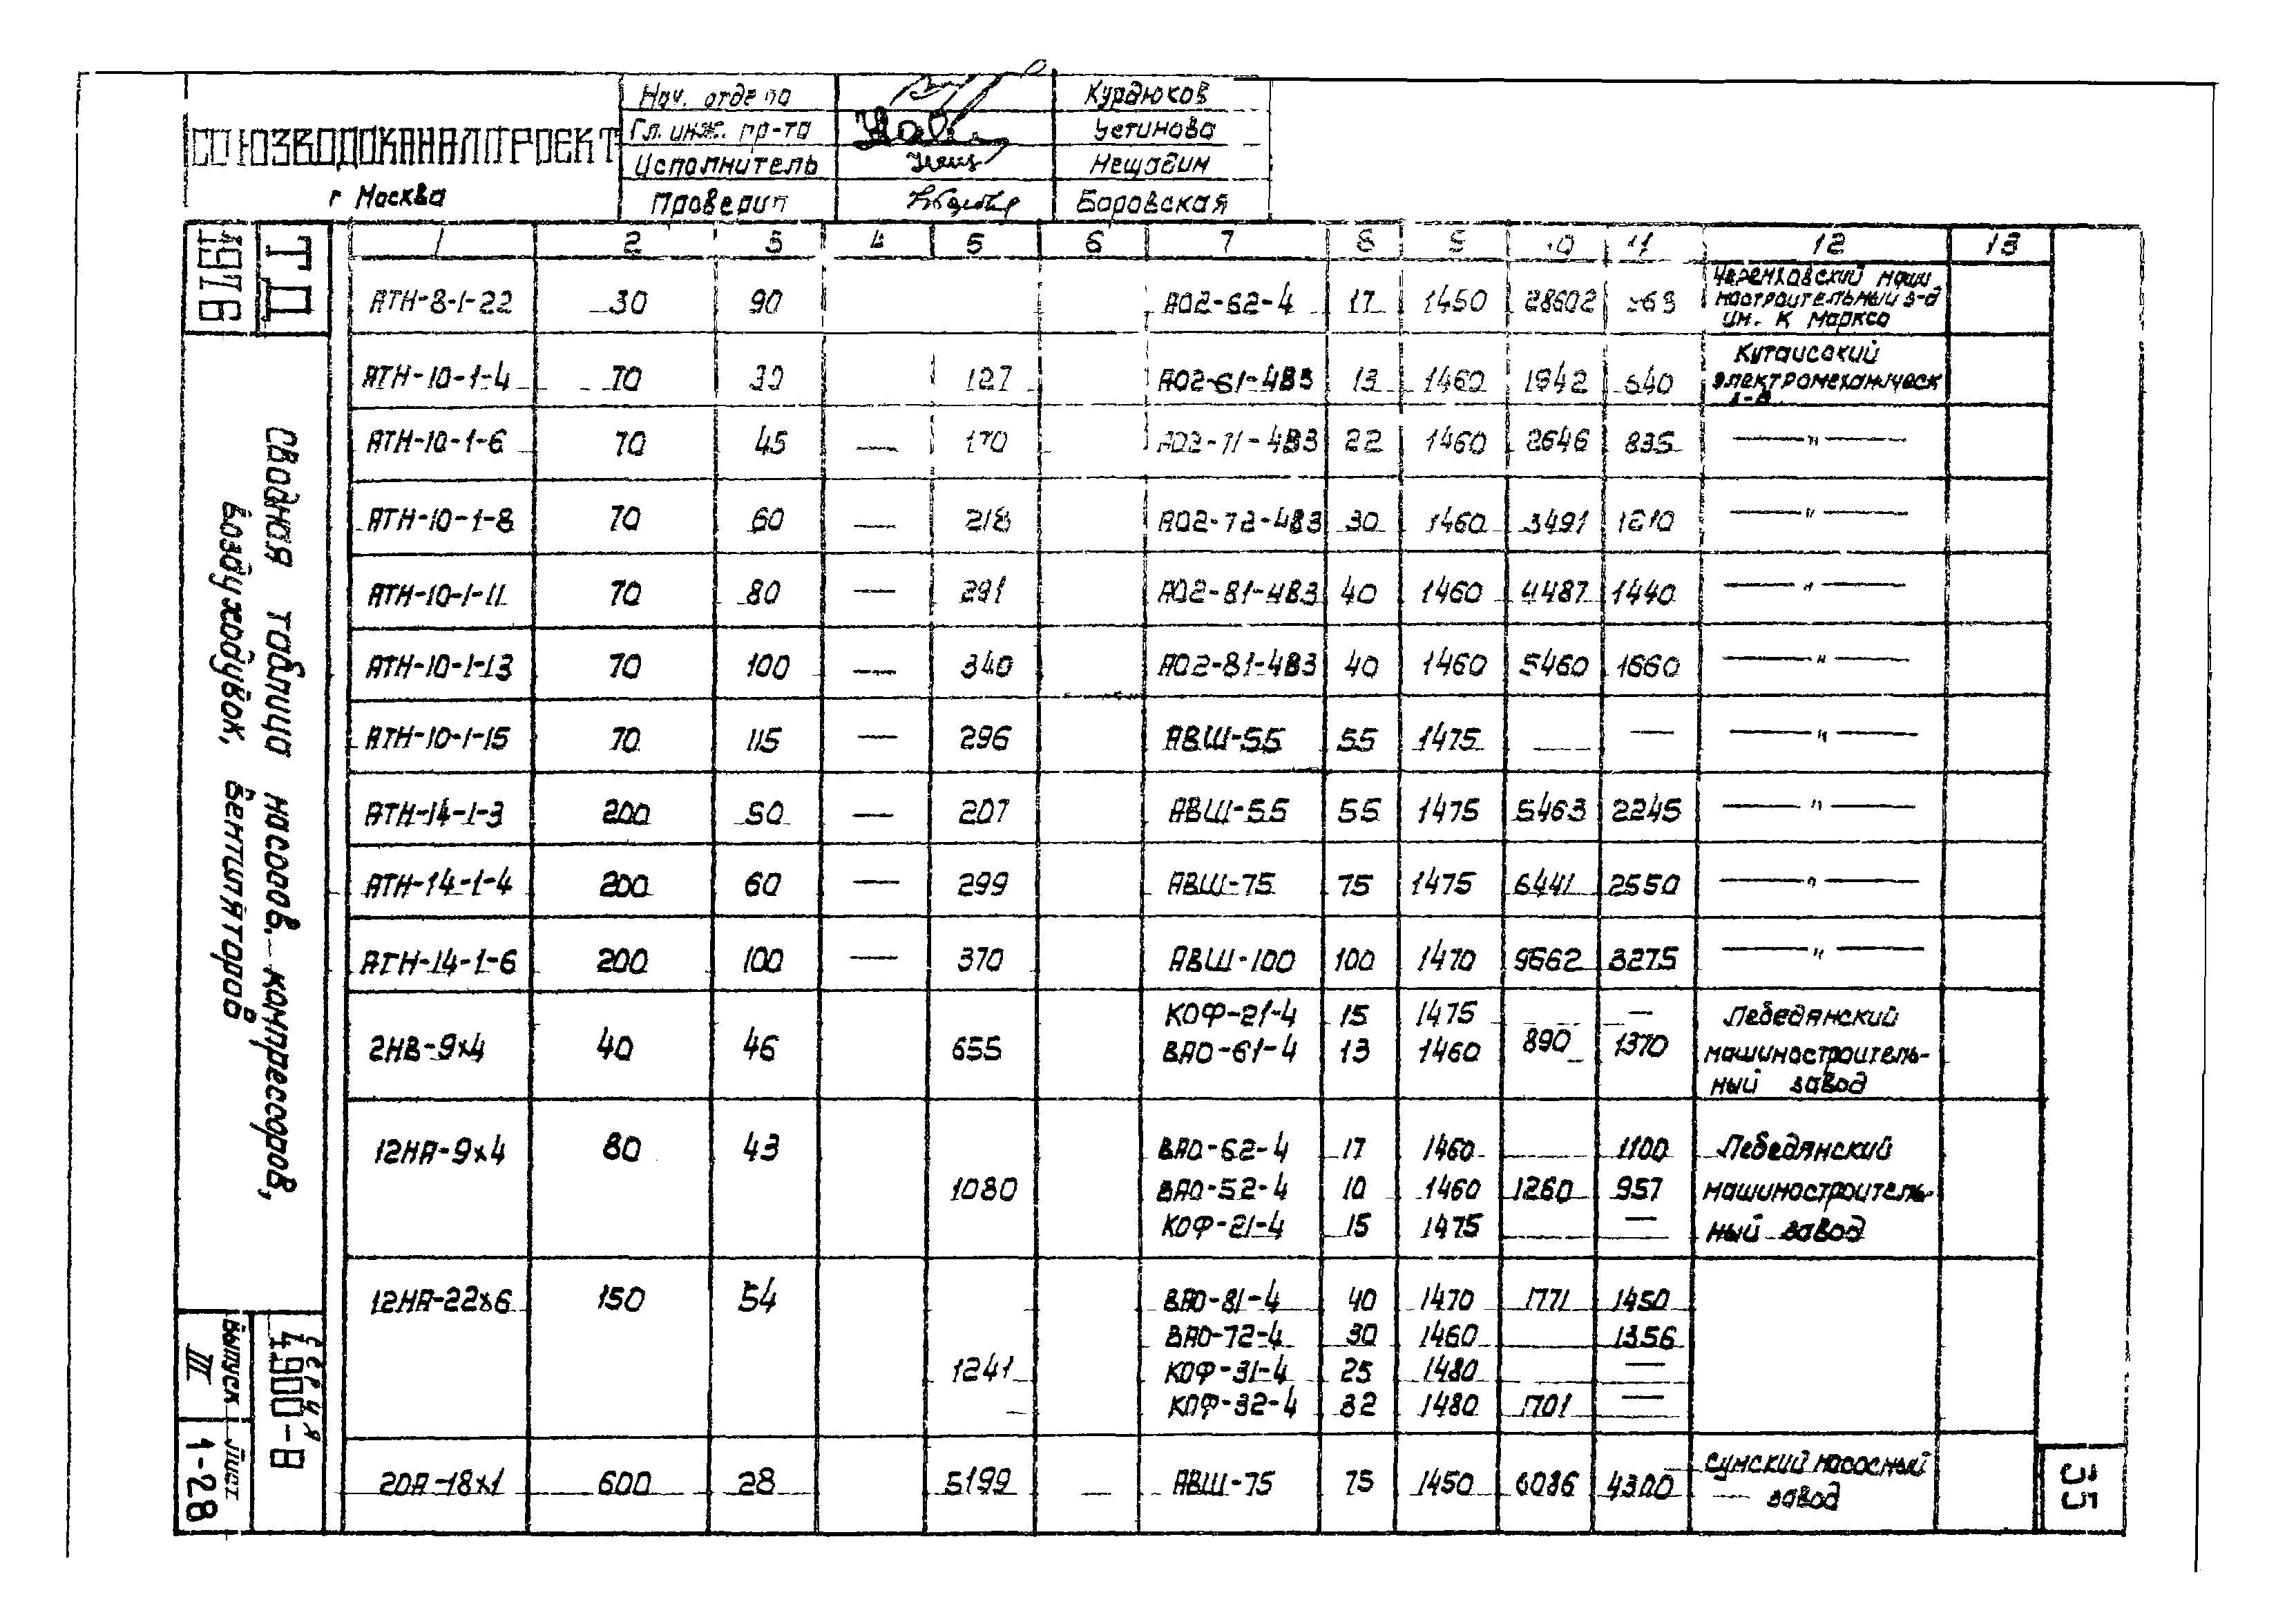 СОЮЗВОДОКАНАЛПРОЕКТ
г Москва
Нач. отдела Курдюков
Гл. инж. пр-та Устинова
Исполнитель Нещадим
Проверил Боровская
1976
ТД
Сводная таблица насосов, компрессоров,
воздуходувок, вентиляторов
Серия
4.900-8
Выпуск
III
Лист
1-28
1 2 3 4 5 6 7 8 9 10 11 12 13
АТН-8-1-22 30 90 АО2-62-4 17 1450 28602 Черемховский маши
ностроительный з-д
им. К Маркса
АТН-10-1-4 70 30 127 АО2-61-4В3 13 1460 1942 540 Кутаисский
электромеханическ
з-д
АТН-10-1-6 70 45 — 170 АО2-71-4В3 22 1460 2646 835 — " —
АТН-10-1-8 70 60 — 218 АО2-72-4В3 30 1460 3491 1210 — " —
АТН-10-1-11 70 80 — 291 АО2-81-4В3 40 1460 4487 1440 — " —
АТН-10-1-13 70 100 — 340 АО2-81-4В3 40 1460 5460 1660 — " —
АТН-10-1-15 70 115 — 296 АВШ-55 55 1475 — — — " —
АТН-14-1-3 200 50 — 207 АВШ-55 55 1475 5463 2245 — " —
АТН-14-1-4 200 60 — 299 АВШ-75 75 1475 6441 2550 — " —
АТН-14-1-6 200 100 — 370 АВШ-100 100 1470 9662 3275 — " —
КОФ-21-4 15 1475 — Лебедянский
2НВ-9х4 40 46 655 ВАО-61-4 13 1460 890 1370 машинострoитель-
ный завод
12НА-9х4 80 43 ВАО-62-4 17 1460 1100 Лебедянский
1080 ВАО-52-4 10 1460 1260 957 машиностроитель-
КОФ-21-4 15 1475 — ный завод
12НА-22х6 150 54 ВАО-81-4 40 1470 1771 1450
ВАО-72-4 30 1460 1356
1241 КОФ-31-4 25 1480 —
КОФ-32-4 32 1480 1701 —
20А-18х1 600 28 5199 — АВШ-75 75 1450 6086 4300 Сумский насосный
завод
35